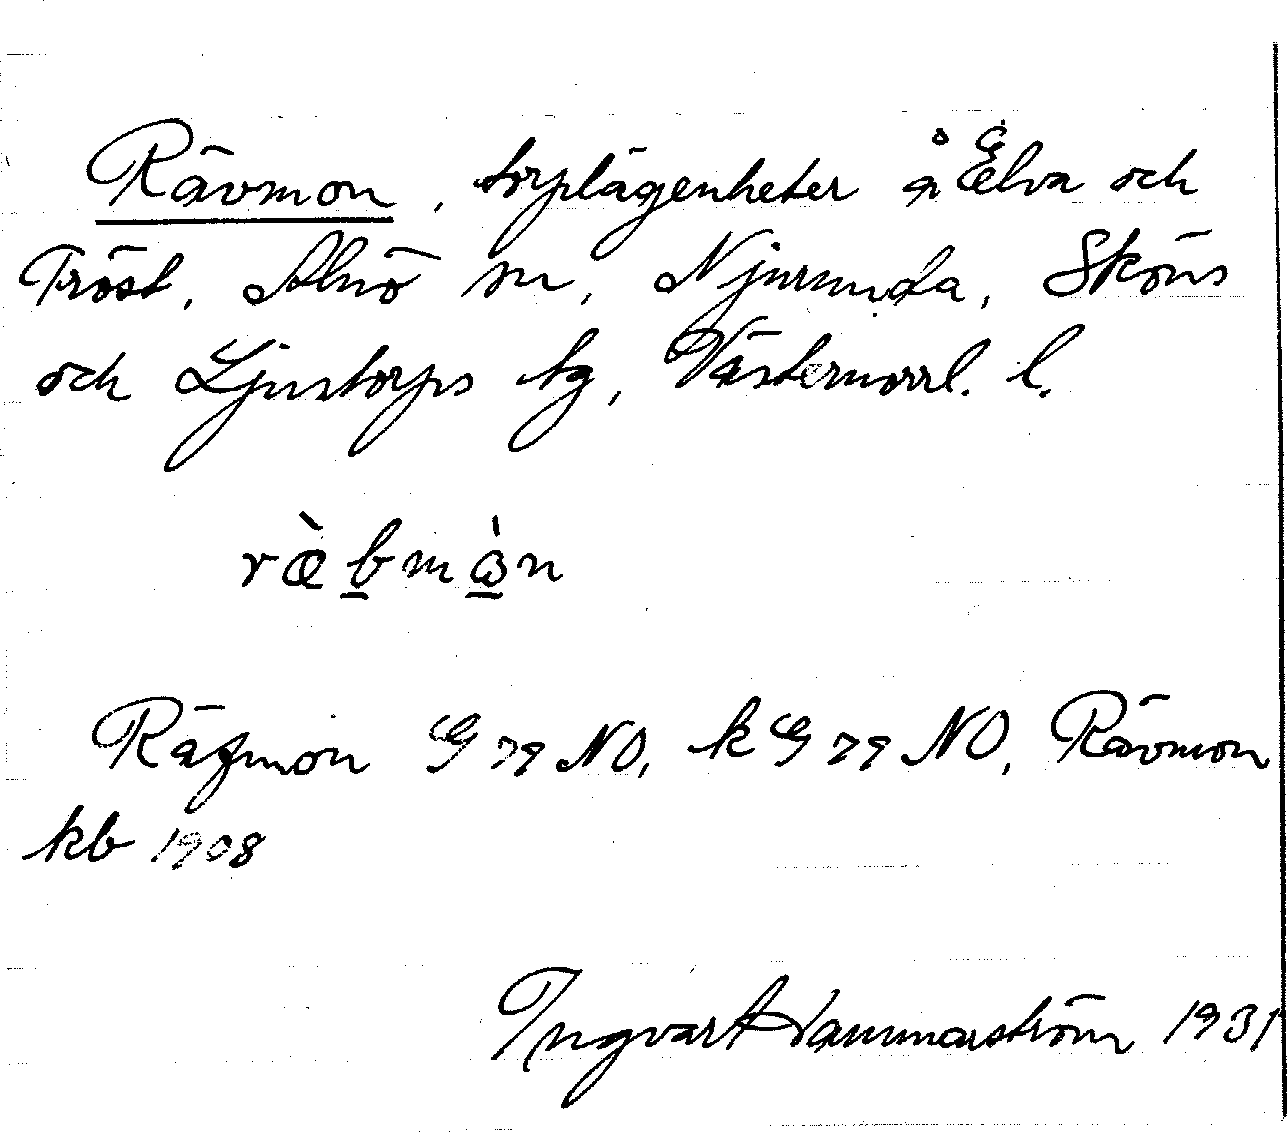 Rävmon, torplägenheter å Elva och
Tröst, Alnö sn, Njurunda, Sköns
och Ljustorps tg, Västernorrl. l.
ræbmɷ̀n
Räfmon G 79 NO, kG 79 NO, Rävmon
kb 1908
Ingvar Hammarström 1931